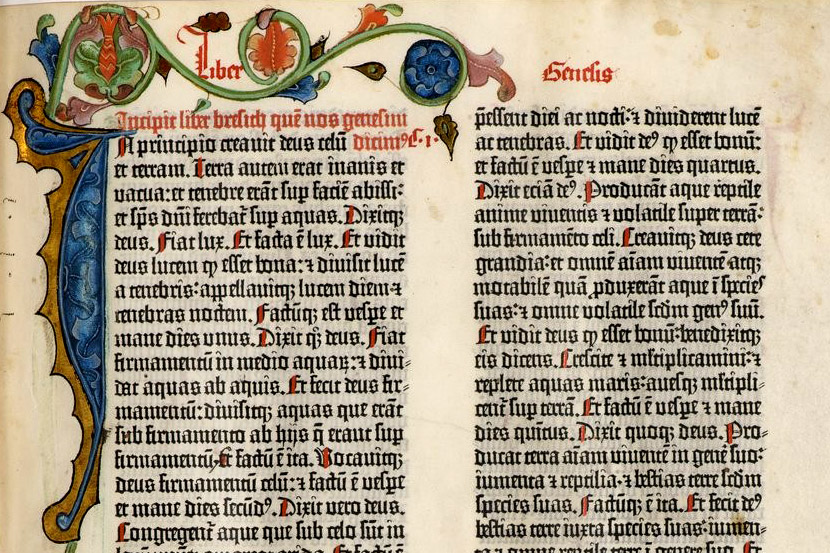 Liber
Genesis
Incipit liber bresich quē nos genesim
dicim⁹ C. 1.
In principio creavit deus celū
et terram. Terra autem erat inanis et
vacua: et tenebre erāt sup faciē abissi:
et sp̄s dn̄i ferebat̄ sup aquas. Dixitqꝫ
deus. Fiat lux. Et facta ē lux. Et vidit
deus lucem ꝙ esset bona: ⁊ divisit lucē
a tenebris: appellavitqꝫ lucem diem ⁊
tenebras noctem. Factūqꝫ est vespe et
mane dies vnus. Dixit qꝫ deus. Fiat
firmamentū in medio aquaꝝ: ⁊ divi-
dat aquas ab aquis. Et fecit deus fir-
mamentū: divisitqꝫ aquas que erāt
sub firmamento ab hijs q̄ erant sup
firmamentū. Et factū ē ita. Vocavitqꝫ
deus firmamentū celū: ⁊ factū ē vespe
et mane dies secūd⁹. Dixit vero deus.
Congregent̄ aque que sub celo sūt in
p̄essent diei ac nocti: ⁊ dividerent lucē
ac tenebras. Et vidit de⁹ ꝙ esset bonū:
et factū ē vespe ⁊ mane dies quartus.
Dixit eciā de⁹. Producāt aque reptile
anime viventis ⁊ volatile super terrā:
sub firmamēto celi. Creavitqꝫ deus cete
grandia: et omnē aīam viventē atqꝫ
motabilē quā ꝓduxerāt aque ī species
suas: ⁊ omne volatile scdm gen⁹ suū.
Et vidit deus ꝙ esset bonū: benedixitqꝫ
eis dicens. Crescite ⁊ mltiplicamini: ⁊
replete aquas maris: avesqꝫ mltipli-
cent̄ sup terrā. Et factū ē vespe ⁊ mane
dies quītus. Dixit quoqꝫ deus. Pro-
ducat terra aīam viventē in genē suo:
iumenta ⁊ reptilia: ⁊ bestias terre scdm
species suas. Factūqꝫ ē ita. Et fecit de⁹
bestias terre iuxta species suas: iumen-